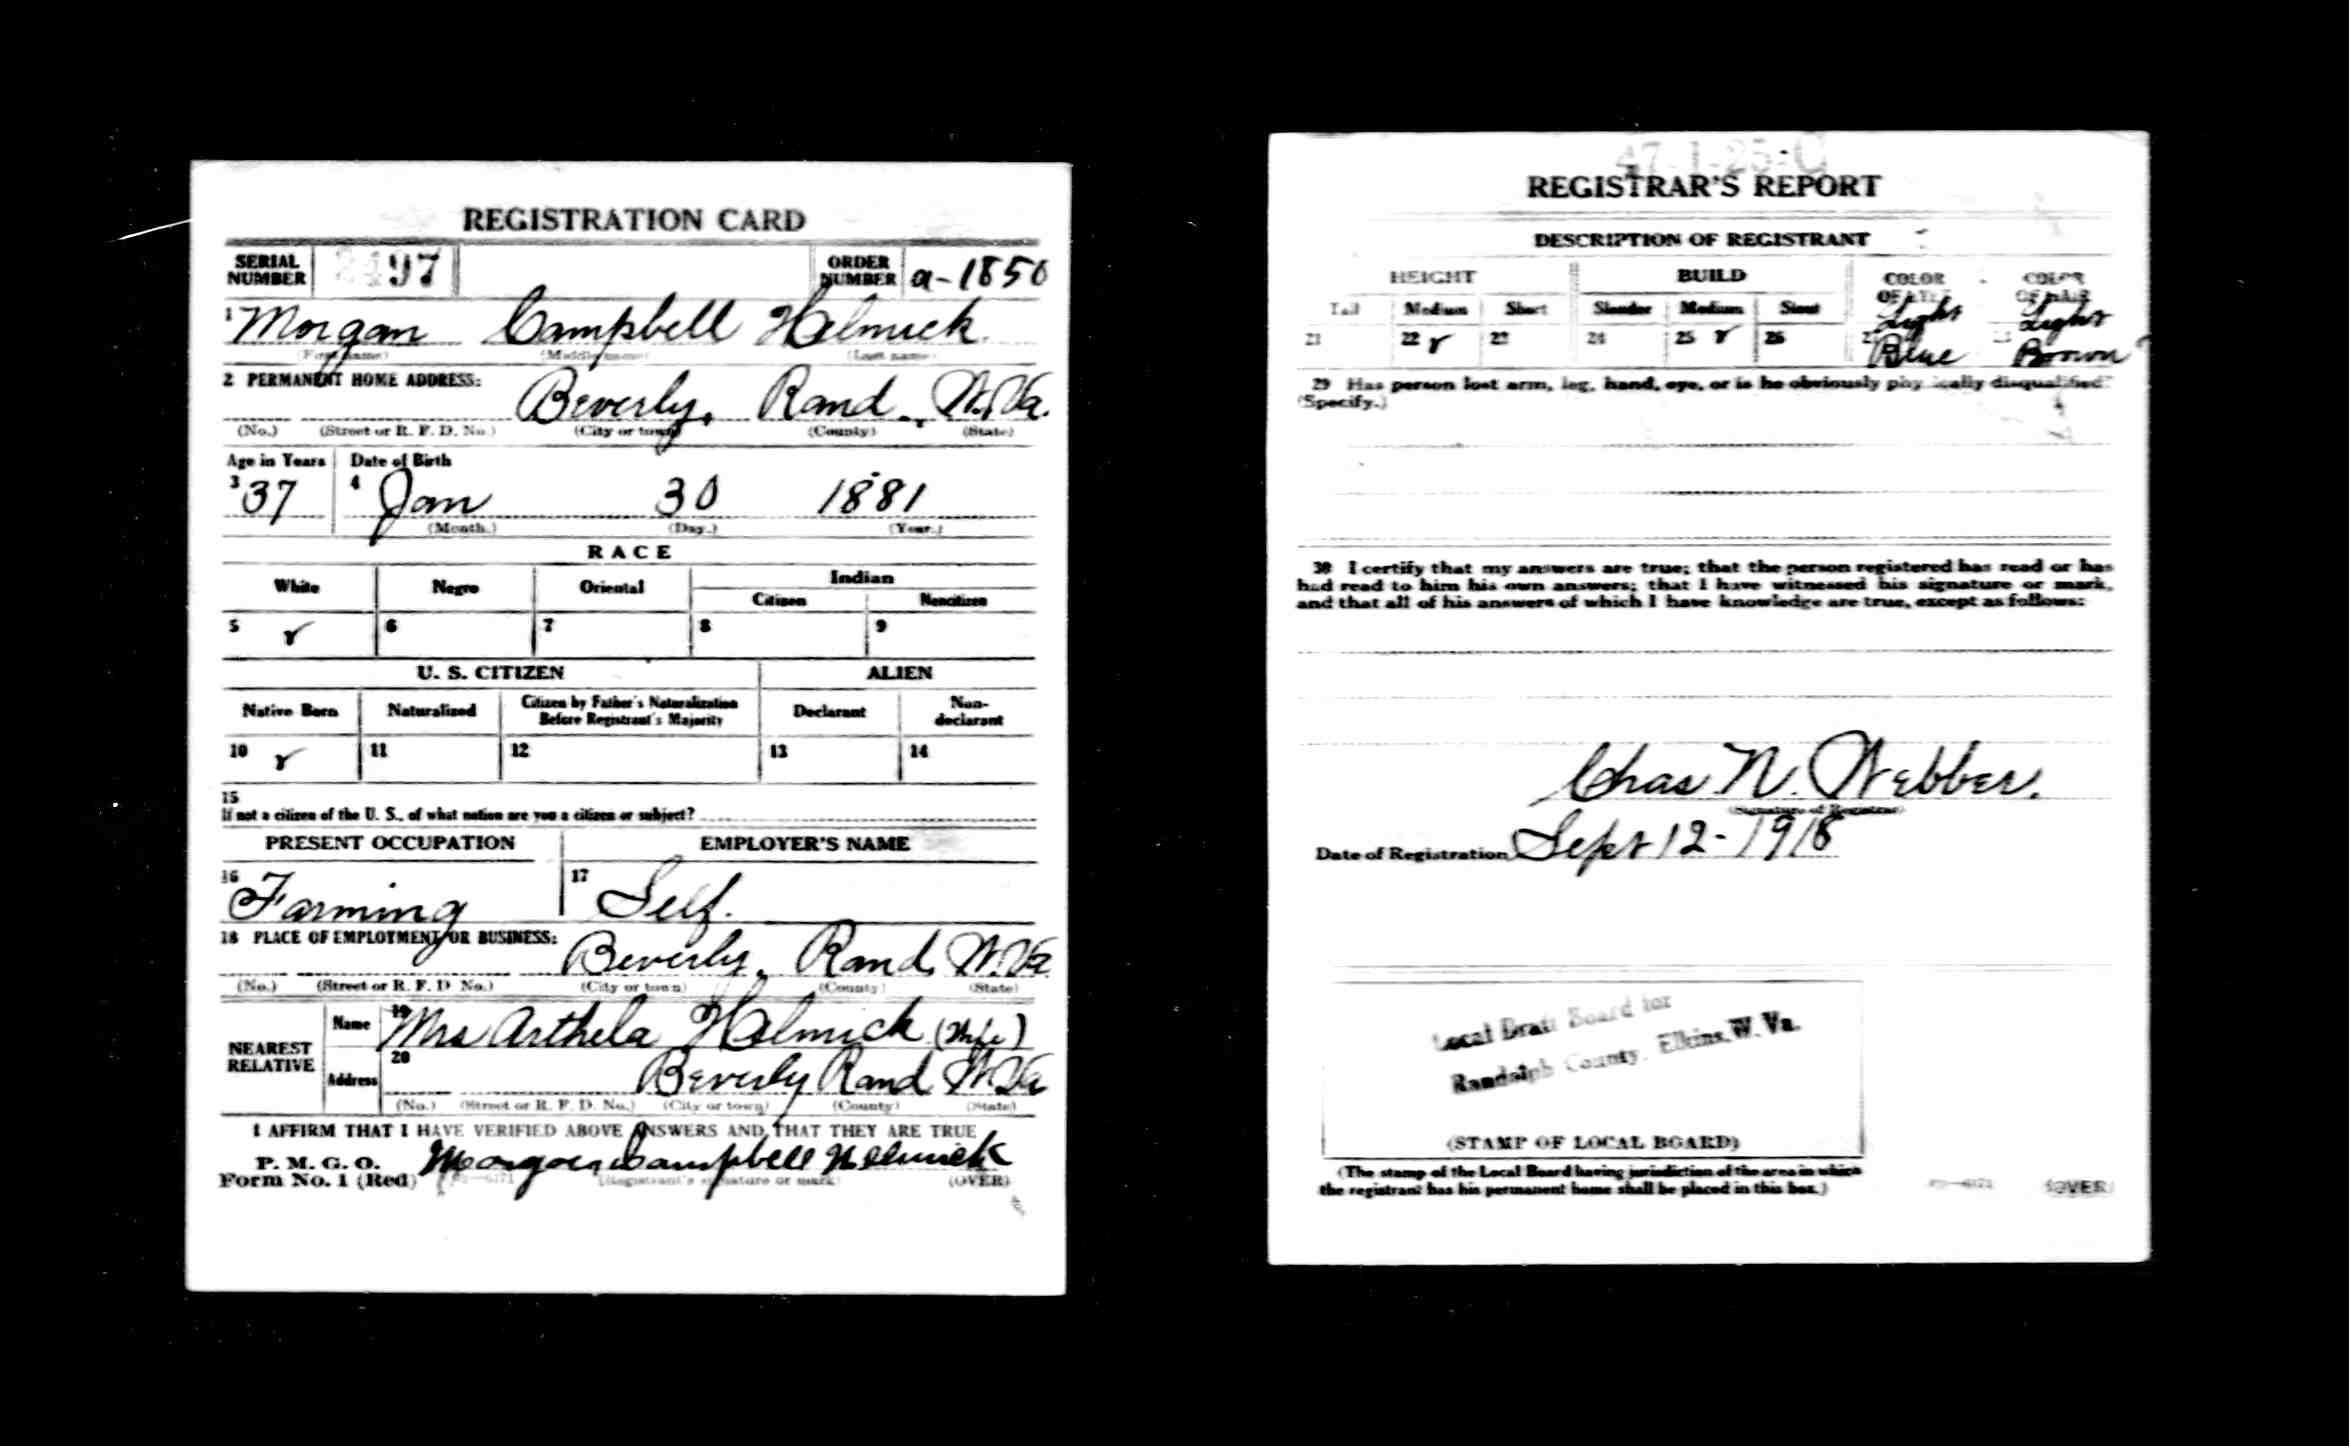 REGISTRATION CARD
SERIAL NUMBER 97 ORDER NUMBER a-1850
1 Morgan Campbell Helmick
(First name) (Middle name) (Last name)
2 PERMANENT HOME ADDRESS:
Beverly, Rand., W.Va.
(No.) (Street or R. F. D. No.) (City or town) (County) (State)
Age in Years Date of Birth
3 37 4 Jan 30 1881
(Month.) (Day.) (Year.)
RACE
White Negro Oriental Indian
Citizen Noncitizen
5 6 7 8 9
U. S. CITIZEN ALIEN
Native Born Naturalized Citizen by Father's Naturalization Before Registrant's Majority Declarant Non-declarant
10 11 12 13 14
15
If not a citizen of the U. S., of what nation are you a citizen or subject?
PRESENT OCCUPATION EMPLOYER'S NAME
16 Farming 17 Self.
18 PLACE OF EMPLOYMENT OR BUSINESS:
Beverly, Rand. W.Va.
(No.) (Street or R. F. D. No.) (City or town) (County) (State)
NEAREST RELATIVE
Name 19 Mrs Arthela Helmick (Wife)
Address 20 Beverly Rand W.Va
(No.) (Street or R. F. D. No.) (City or town) (County) (State)
I AFFIRM THAT I HAVE VERIFIED ABOVE ANSWERS AND THAT THEY ARE TRUE
P. M. G. O.
Form No. 1 (Red) Morgan Campbell Helmick
(Registrant's signature or mark) (OVER)
47-1-25-C
REGISTRAR'S REPORT
DESCRIPTION OF REGISTRANT
HEIGHT BUILD COLOR OF EYES COLOR OF HAIR
Tall Medium Short Slender Medium Stout
21 22 23 24 25 26 27 Light Blue 28 Light Brown
29 Has person lost arm, leg, hand, eye, or is he obviously physically disqualified?
(Specify.)
30 I certify that my answers are true; that the person registered has read or has
had read to him his own answers; that I have witnessed his signature or mark,
and that all of his answers of which I have knowledge are true, except as follows:
Chas N. Webber.
(Signature of Registrar)
Date of Registration Sept 12-1918
Local Draft Board for
Randolph County, Elkins, W. Va.
(STAMP OF LOCAL BOARD)
(The stamp of the Local Board having jurisdiction of the area in which
the registrant has his permanent home shall be placed in this box.)
(OVER)